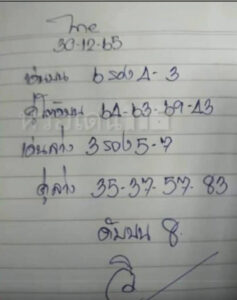 ไทย
30-12-65
เด่นบน 6 รอง 4-3
คู่โต๊ดบน 64-63-69-43
เด่นล่าง 3 รอง 5-7
คู่ล่าง 35-37-57-83
ดับบน 8